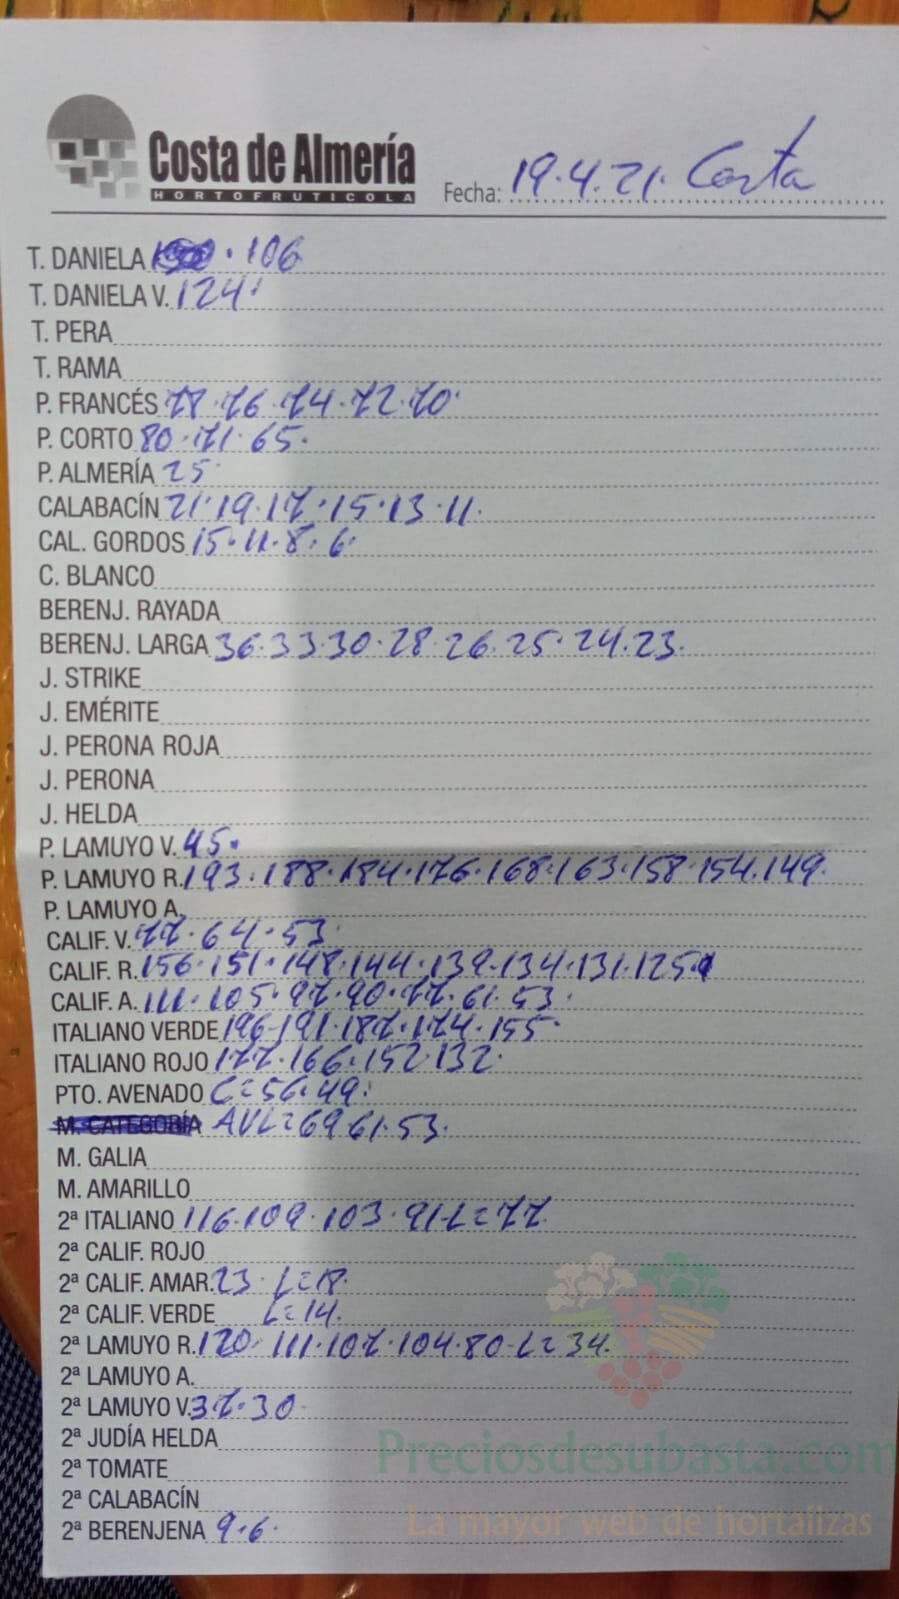 Costa de Almería
HORTOFRUTICOLA
Fecha: 19.4.21. Costa
T. DANIELA · 106
T. DANIELA V. 124·
T. PERA
T. RAMA
P. FRANCÉS 78·76·74·72·70·
P. CORTO 80·71·65·
P. ALMERÍA 25
CALABACÍN 21·19·17·15·13·11·
CAL. GORDOS 15·11·8·6·
C. BLANCO
BERENJ. RAYADA
BERENJ. LARGA 36·33·30·28·26·25·24·23·
J. STRIKE
J. EMÉRITE
J. PERONA ROJA
J. PERONA
J. HELDA
P. LAMUYO V. 45·
P. LAMUYO R. 193·188·184·176·168·163·158·154·149·
P. LAMUYO A.
CALIF. V. 77·64·53
CALIF. R. 156·151·148·144·139·134·131·125·
CALIF. A. 111·105·97·90·77·61·53·
ITALIANO VERDE 196·191·187·174·155·
ITALIANO ROJO 177·166·152·132·
PTO. AVENADO C=56·49·
M. CATEGORÍA AVL=69·61·53·
M. GALIA
M. AMARILLO
2ª ITALIANO 116·109·103·91·L=77
2ª CALIF. ROJO
2ª CALIF. AMAR. 23· L=18·
2ª CALIF. VERDE L=14·
2ª LAMUYO R. 120·111·107·104·80·L=34·
2ª LAMUYO A.
2ª LAMUYO V. 37·30·
2ª JUDÍA HELDA
2ª TOMATE
2ª CALABACÍN
2ª BERENJENA 9·6·
Preciosdesubasta.com
La mayor web de hortalizas